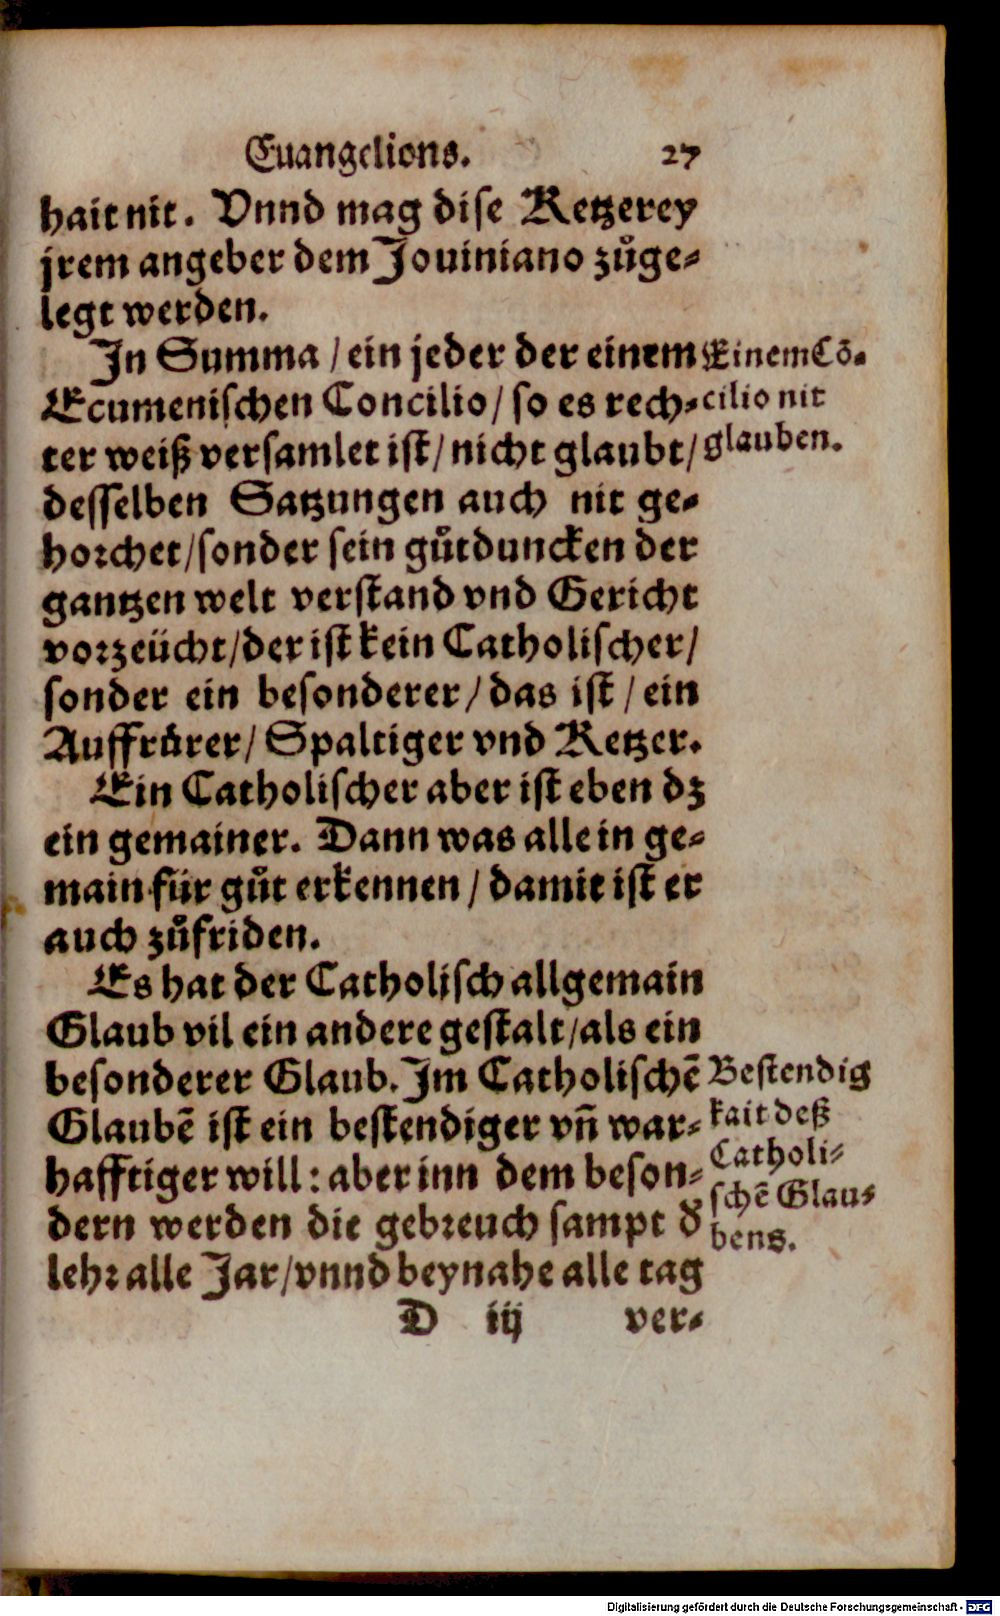 Euangelions. 27
hait nit. Vnnd mag dise Ketzerey
jrem angeber dem Jouiniano zůge-
legt werden.
In Summa / ein jeder der einem
Ecumenischen Concilio / so es rech-
ter weiß versamlet ist / nicht glaubt /
desselben Satzungen auch nit ge-
horchet / sonder sein gůtduncken der
gantzen welt verstand vnd Gericht
vorzeücht / der ist kein Catholischer /
sonder ein besonderer / das ist / ein
Auffrůrer / Spaltiger vnd Ketzer.
Ein Catholischer aber ist eben dz
ein gemainer. Dann was alle in ge-
main für gůt erkennen / damit ist er
auch zůfriden.
Es hat der Catholisch allgemain
Glaub vil ein andere gestalt / als ein
besonderer Glaub. Im Catholischē
Glaubē ist ein bestendiger vñ war-
hafftiger will: aber inn dem beson-
dern werden die gebreuch sampt d'
lehr alle Jar / vnnd beynahe alle tag
D iij ver-
Einem Cō-
cilio nit
glauben.
Bestendig
kait deß
Catholi-
schē Glau-
bens.
Digitalisierung gefördert durch die Deutsche Forschungsgemeinschaft - DFG